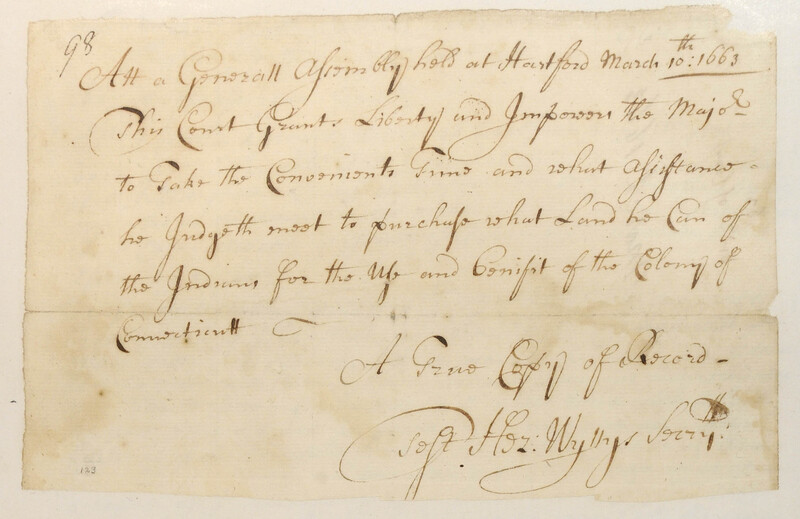 98
Att a Generall Assembly held at Hartford March 10th: 1663
This Court Grants Liberty and Impowers the Majo.r
to Take the Convenients Time and what Asistance
he Judgeth meet to purchase what Land he Can of
the Indians for the Use and benifit of the Colony of
Connecticutt
A True Copy of Record -
Test Hez: Wyllys Secrty:
143